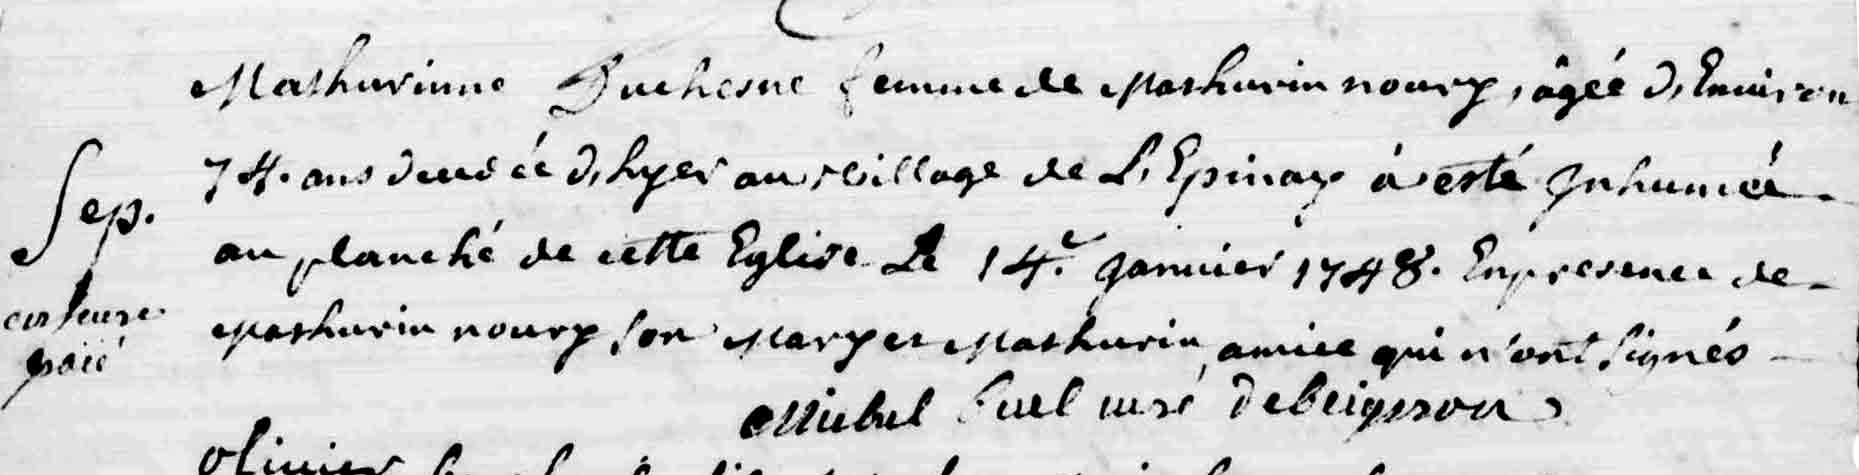 Mathurinne Duchesne femme de Mathurin noury, âgéé d'Enuiron
74. ans decedée d'hyer au uillage de L'Epinay á esté Jnhumée
Sep.
au planché de cette Eglise Le 14.e Januier 1748. En presence de
Mathurin noury son Mary et Mathurin amice qui n'ont signés
paié
Michel curé de
oliuier